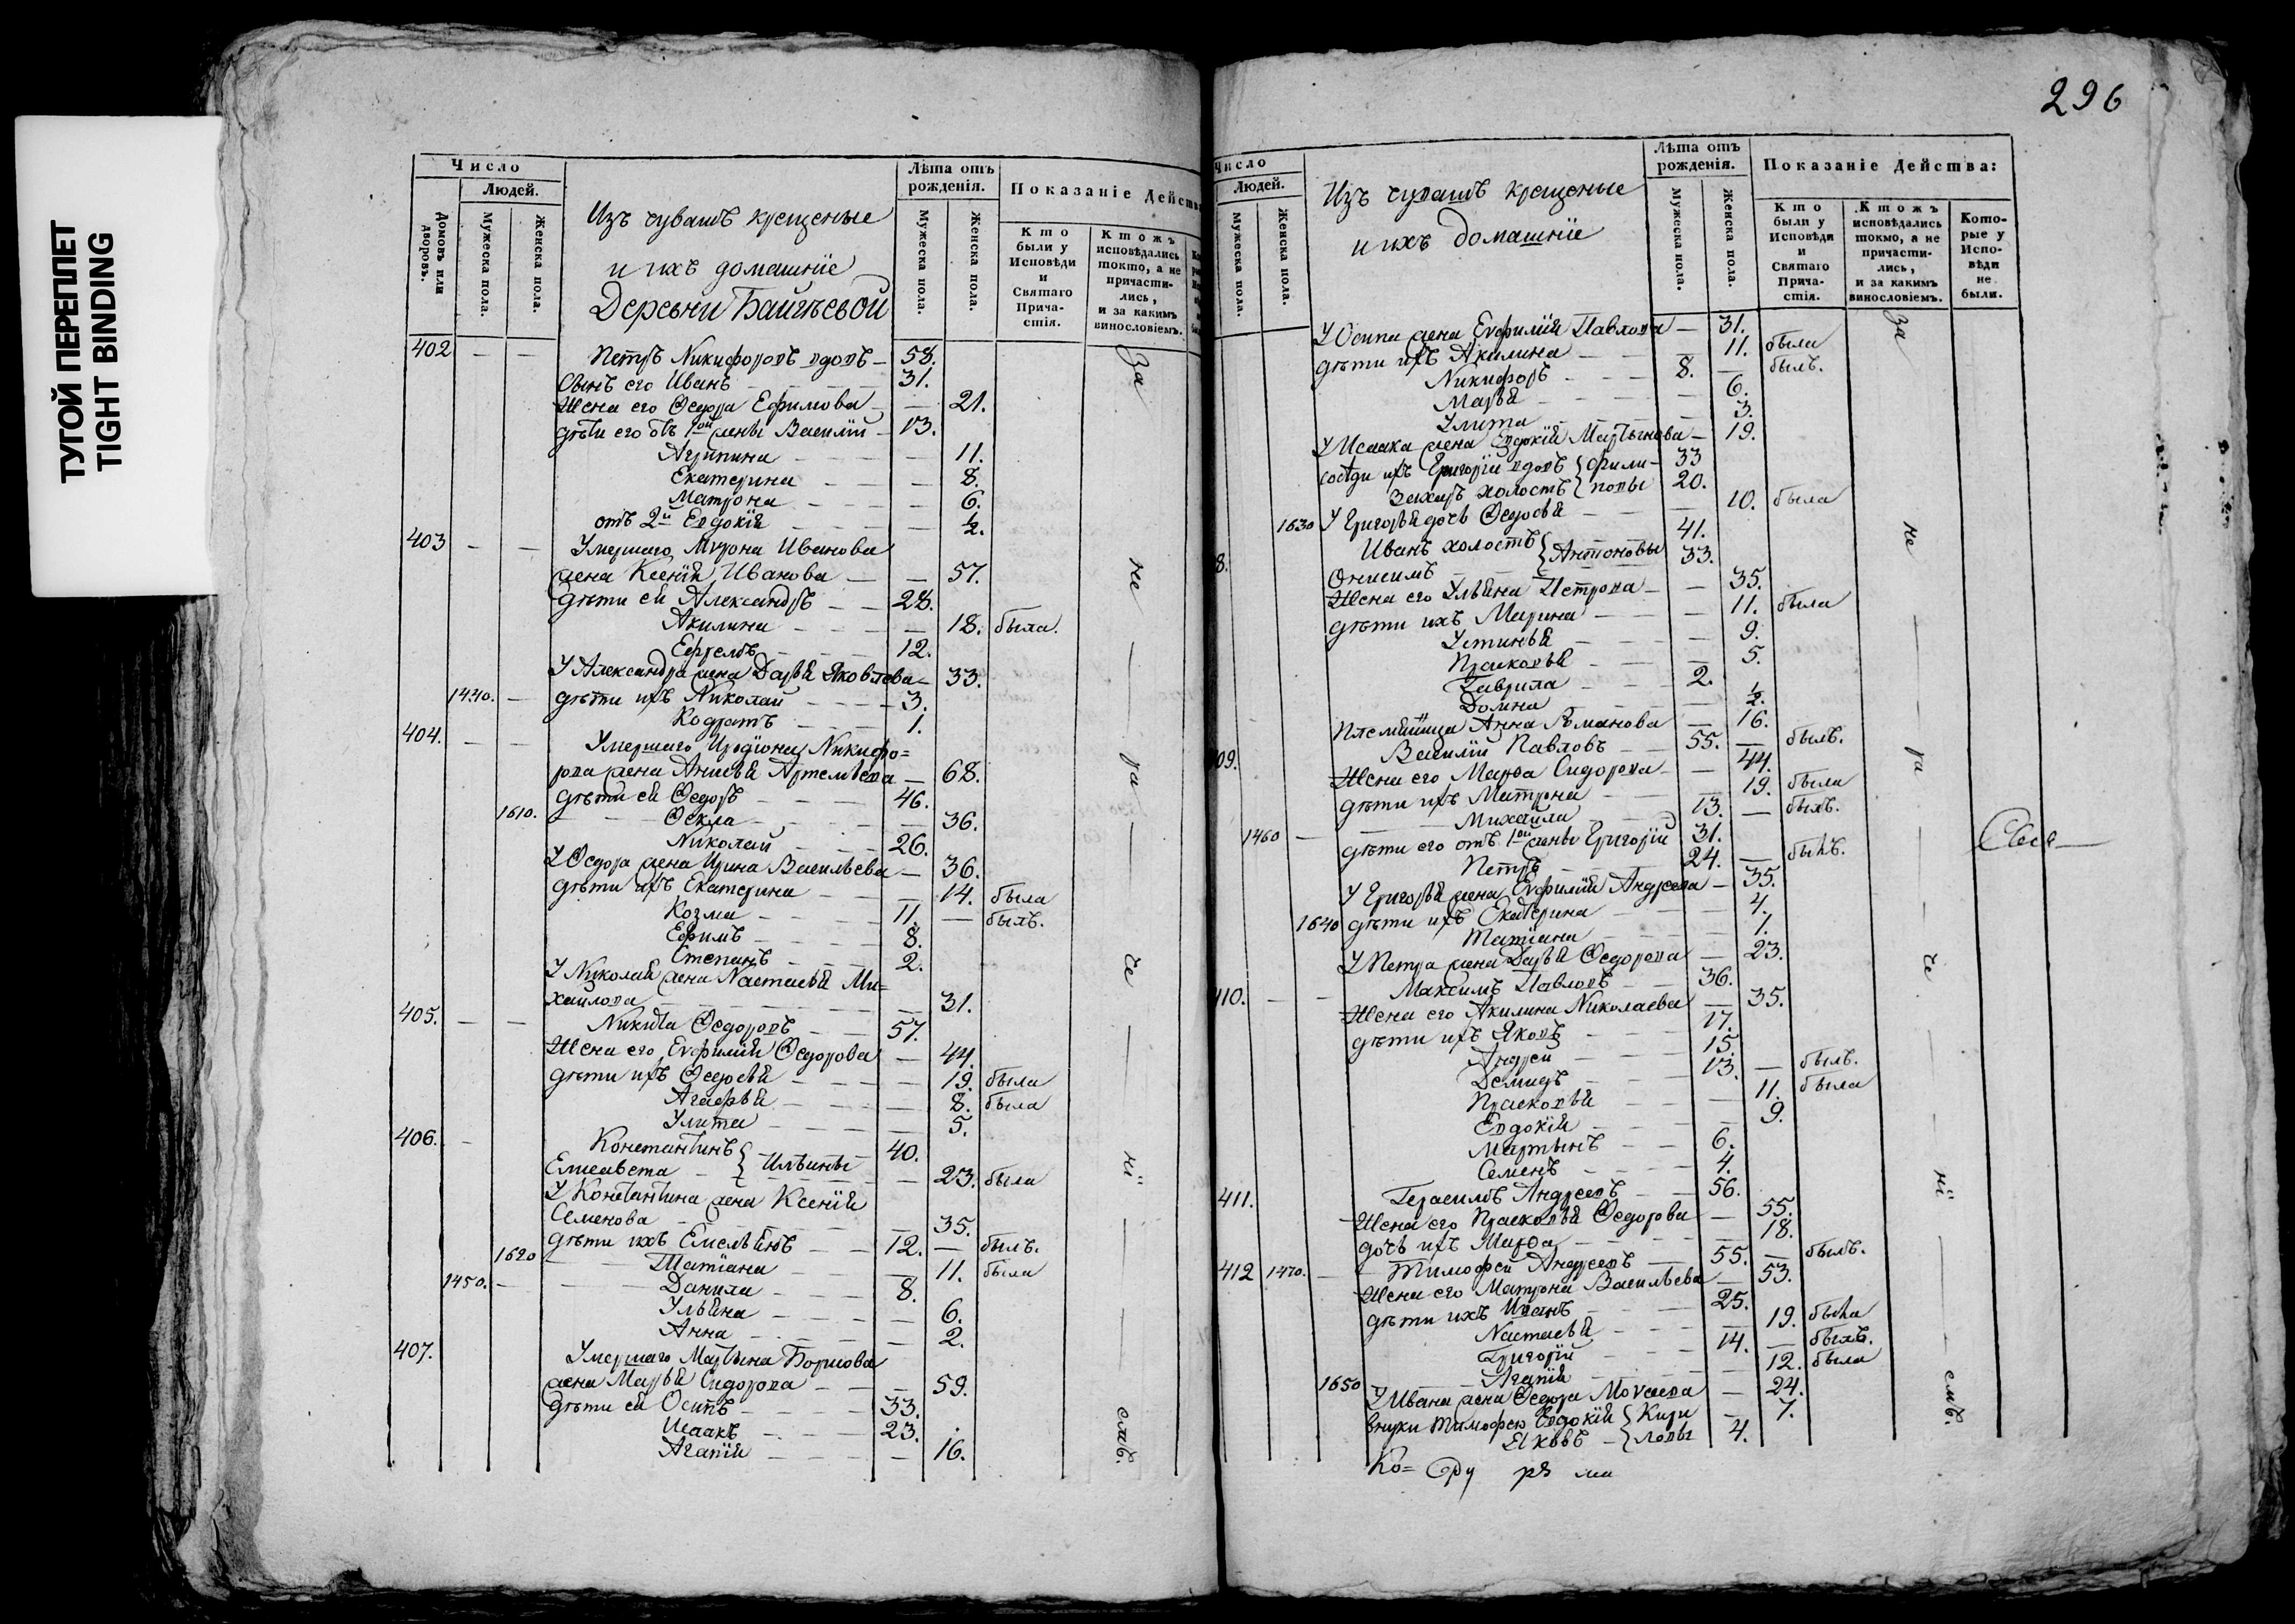 ТУГОЙ ПЕРЕПЛЕТ
TIGHT BINDING
Число
Людей.
Домовъ или дворовъ.
Мужеска пола.
Женска пола.
Изъ чувашъ крещеные
и ихъ домашніе
Деревни Байгѣевой
Лѣта отъ рожденія.
Мужеска пола.
Женска пола.
Показаніе Действ
Кто были у Исповѣди и Святаго Прича-стія.
Ктожъ исповѣдались токмо, а не причасти-лись, и за какимъ винословіемъ.
402 — — Петръ Никифоровъ вдовъ — 58.
Сынъ его Иванъ — 31.
Жена его Ѳедора Ефимова — — 21.
дѣти его отъ 1ой жены Василій — 13.
Агрипина — — 11.
Екатерина — — 8.
Матрона — — 6.
отъ 2й Евдокія — — ½.
403 — — Умершаго Мирона Иванова
жена Ксенія Иванова — — 57.
дѣти ея Александръ — — 28.
Акилина — — 18. была.
Ефремъ — 12.
У Александра жена Дарья Яковлева — 33.
1440. — дѣти ихъ Николай — 3.
Кодратъ — 1.
404. — — Умершаго Иродіона Никифо=
рова жена Анисья Артемьева — 68.
дѣти ея Ѳедоръ — 46.
1610. Ѳекла — — 36.
Николай — 26.
У Ѳедора жена Ирина Васильева — 36.
дѣти ихъ Екатерина — — 14. была
Козма — 11. — былъ.
Ефимъ — 8.
Степанъ — 2.
У Николая жена Настасья Ми=
хайлова — — 31.
405. — — Никита Ѳедоровъ — 57.
Жена его Евфимія Ѳедорова — 44.
дѣти ихъ Ѳедосья — — 19. была
Агафья — — 8. была
Улита — — 5.
406. — Константинъ } Ильины 40.
Елисавета — — 23. была
У Константина жена Ксенія
Семенова — — 35.
дѣти ихъ Емельянъ — — 12. — былъ.
1620 Татіана — — 11. была
1450. — Данила — 8.
Ульяна — — 6.
Анна — — 2.
407. Умершаго Мартына Борисова
жена Марья Сидорова — — 59.
дѣти ея Осипъ — 33.
Исаакъ — 23.
Агапія — — 16.
За
не
ра
че
ні
емъ.
296
Число
Людей.
Мужеска пола.
Женска пола.
Изъ чувашъ крещеные
и ихъ домашніе
Лѣта отъ рожденія.
Мужеска пола.
Женска пола.
Показаніе Действа:
Кто были у Исповѣди и Святаго Прича-стія.
Ктожъ исповѣдались токмо, а не причасти-лись, и за какимъ винословіемъ.
Кото-рые у Испо-вѣди не были.
У Осипа жена Евфимія Павлова — 31.
дѣти ихъ Акилина — — 11. была
Никифоръ — 8. — былъ.
Марья — 6.
Улита — 3.
У Исаака жена Евдокія Мартынова — 19.
сосѣди ихъ Григорій вдовъ } Фили- 33
Захаръ холостъ } повы 20.
1630 У Григорья дочь Ѳедосья — — 10. была
8. Иванъ холостъ } Антоновы 41.
Онисимъ — 33.
Жена его Ульяна Петрова — — 35.
дѣти ихъ Марина — — 11. была
Устинья — — 9.
Прасковья — — 5.
Гаврила — 2.
Домна — — ½.
Племянница Анна Романова — 16.
09. Василій Павловъ — 55. — былъ.
Жена его Марѳа Сидорова — — 44.
дѣти ихъ Матрона — — 19. была
Михайла — 13. — былъ.
1460 — дѣти его отъ 1ой жены Григорій 31.
Петръ — 24. — былъ.
У Григорья жена Евфимія Андреева — 35.
1640 дѣти ихъ Екатерина — — 4.
Татіана — — 1.
У Петра жена Дарья Ѳедорова — 23.
410. — — Максимъ Павловъ — 36.
Жена его Акилина Николаева — 35.
дѣти ихъ Яковъ — 17.
Андрей — 15.
Демидъ — 13. — былъ.
Прасковья — — 11. была
Евдокія — — 9.
Мартынъ — 6.
Семенъ — 4.
411. Герасимъ Андреевъ — 56.
Жена его Прасковья Ѳедорова — 55.
дочь ихъ Марѳа — — 18.
412 1470. — Тимофей Андреевъ — 55. — былъ.
Жена его Матрона Васильева — 53.
дѣти ихъ Иванъ — 25.
Настасья — — 19. была
Григорій — 14. — былъ.
Агапія — — 12. была
1650 У Ивана жена Ѳедора Моѵсеева — 24.
внуки Тимофею Евдокія } Кири — 7.
Яковъ } ловы 4.
За
не
ра
че
ні
емъ.